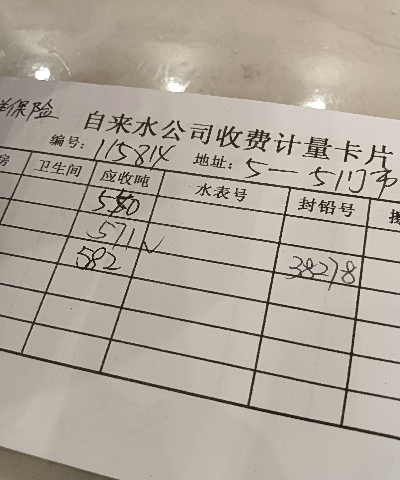 保险
自来水公司收费计量卡片
编号: 115814 地址: 5—511
房 卫生间 应收吨 水表号 封铅号
550
571 ✓
582 38278